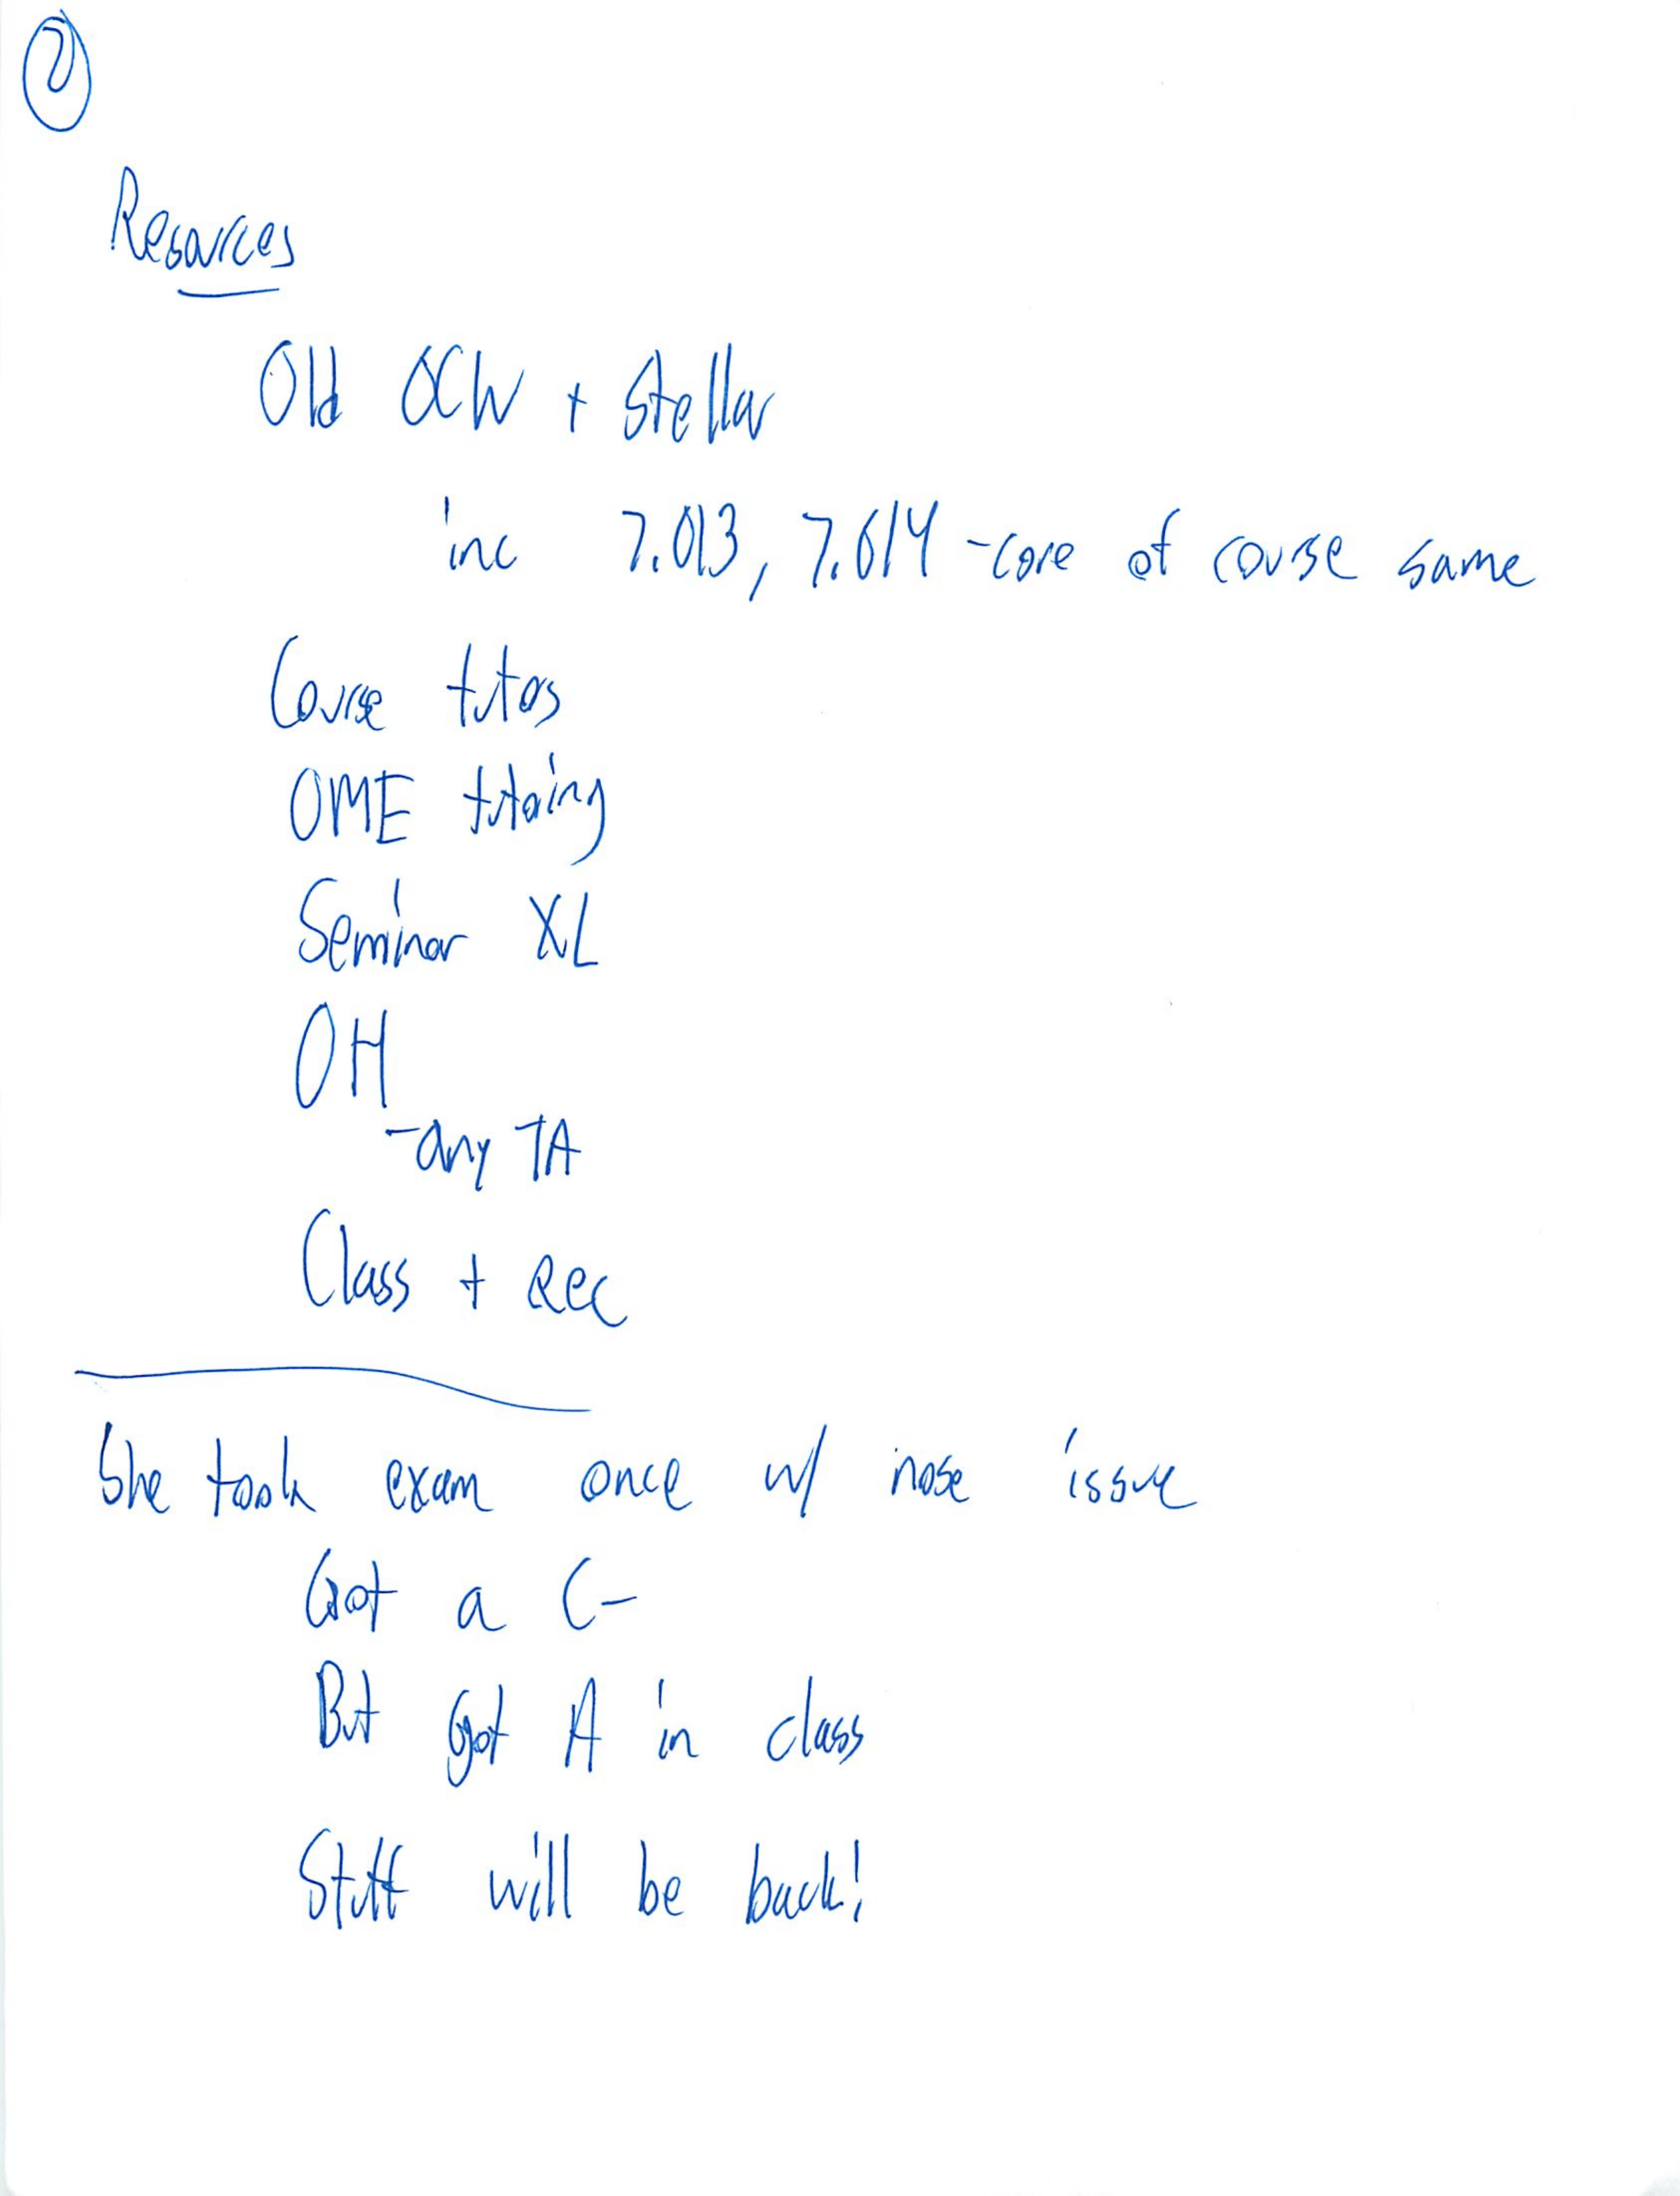 2
Resources
Old OCW + Stellar
inc 7.013, 7.014 - core of course same
Course tutors
OME tutoring
Seminar XL
OH
- any TA
Class + Rec
She took exam once w/ nose issue
Got a C-
But got A in class
Stuff will be back!